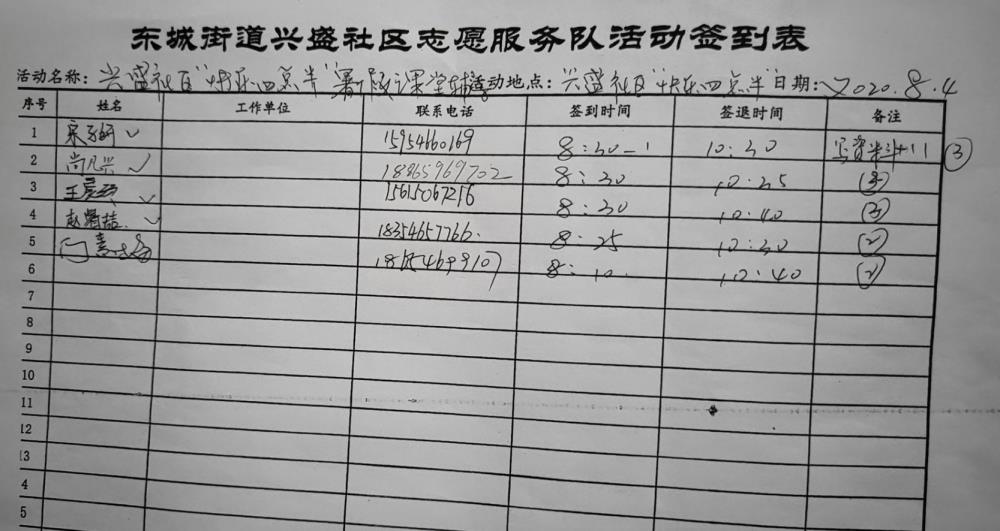 东城街道兴盛社区志愿服务队活动签到表
活动名称：兴盛社区"快乐四点半"暑假课堂辅 活动地点：兴盛社区"快乐四点半" 日期：2020.8.4
序号 姓名 工作单位 联系电话 签到时间 签退时间 备注
1 宋 ✓ 15954660169 8:30 10:30 写资料+11 ③
2 尚凡兴 ✓ 18865969702 8:30 10:35 ③
3 王 ✓ 15615067256 8:30 10:40 ③
4 赵 ✓ 18354657766. 8:25 10:30 ②
5 闫 8:10 10:40 ②
6
7
8
9
10
11
12
13
4
5